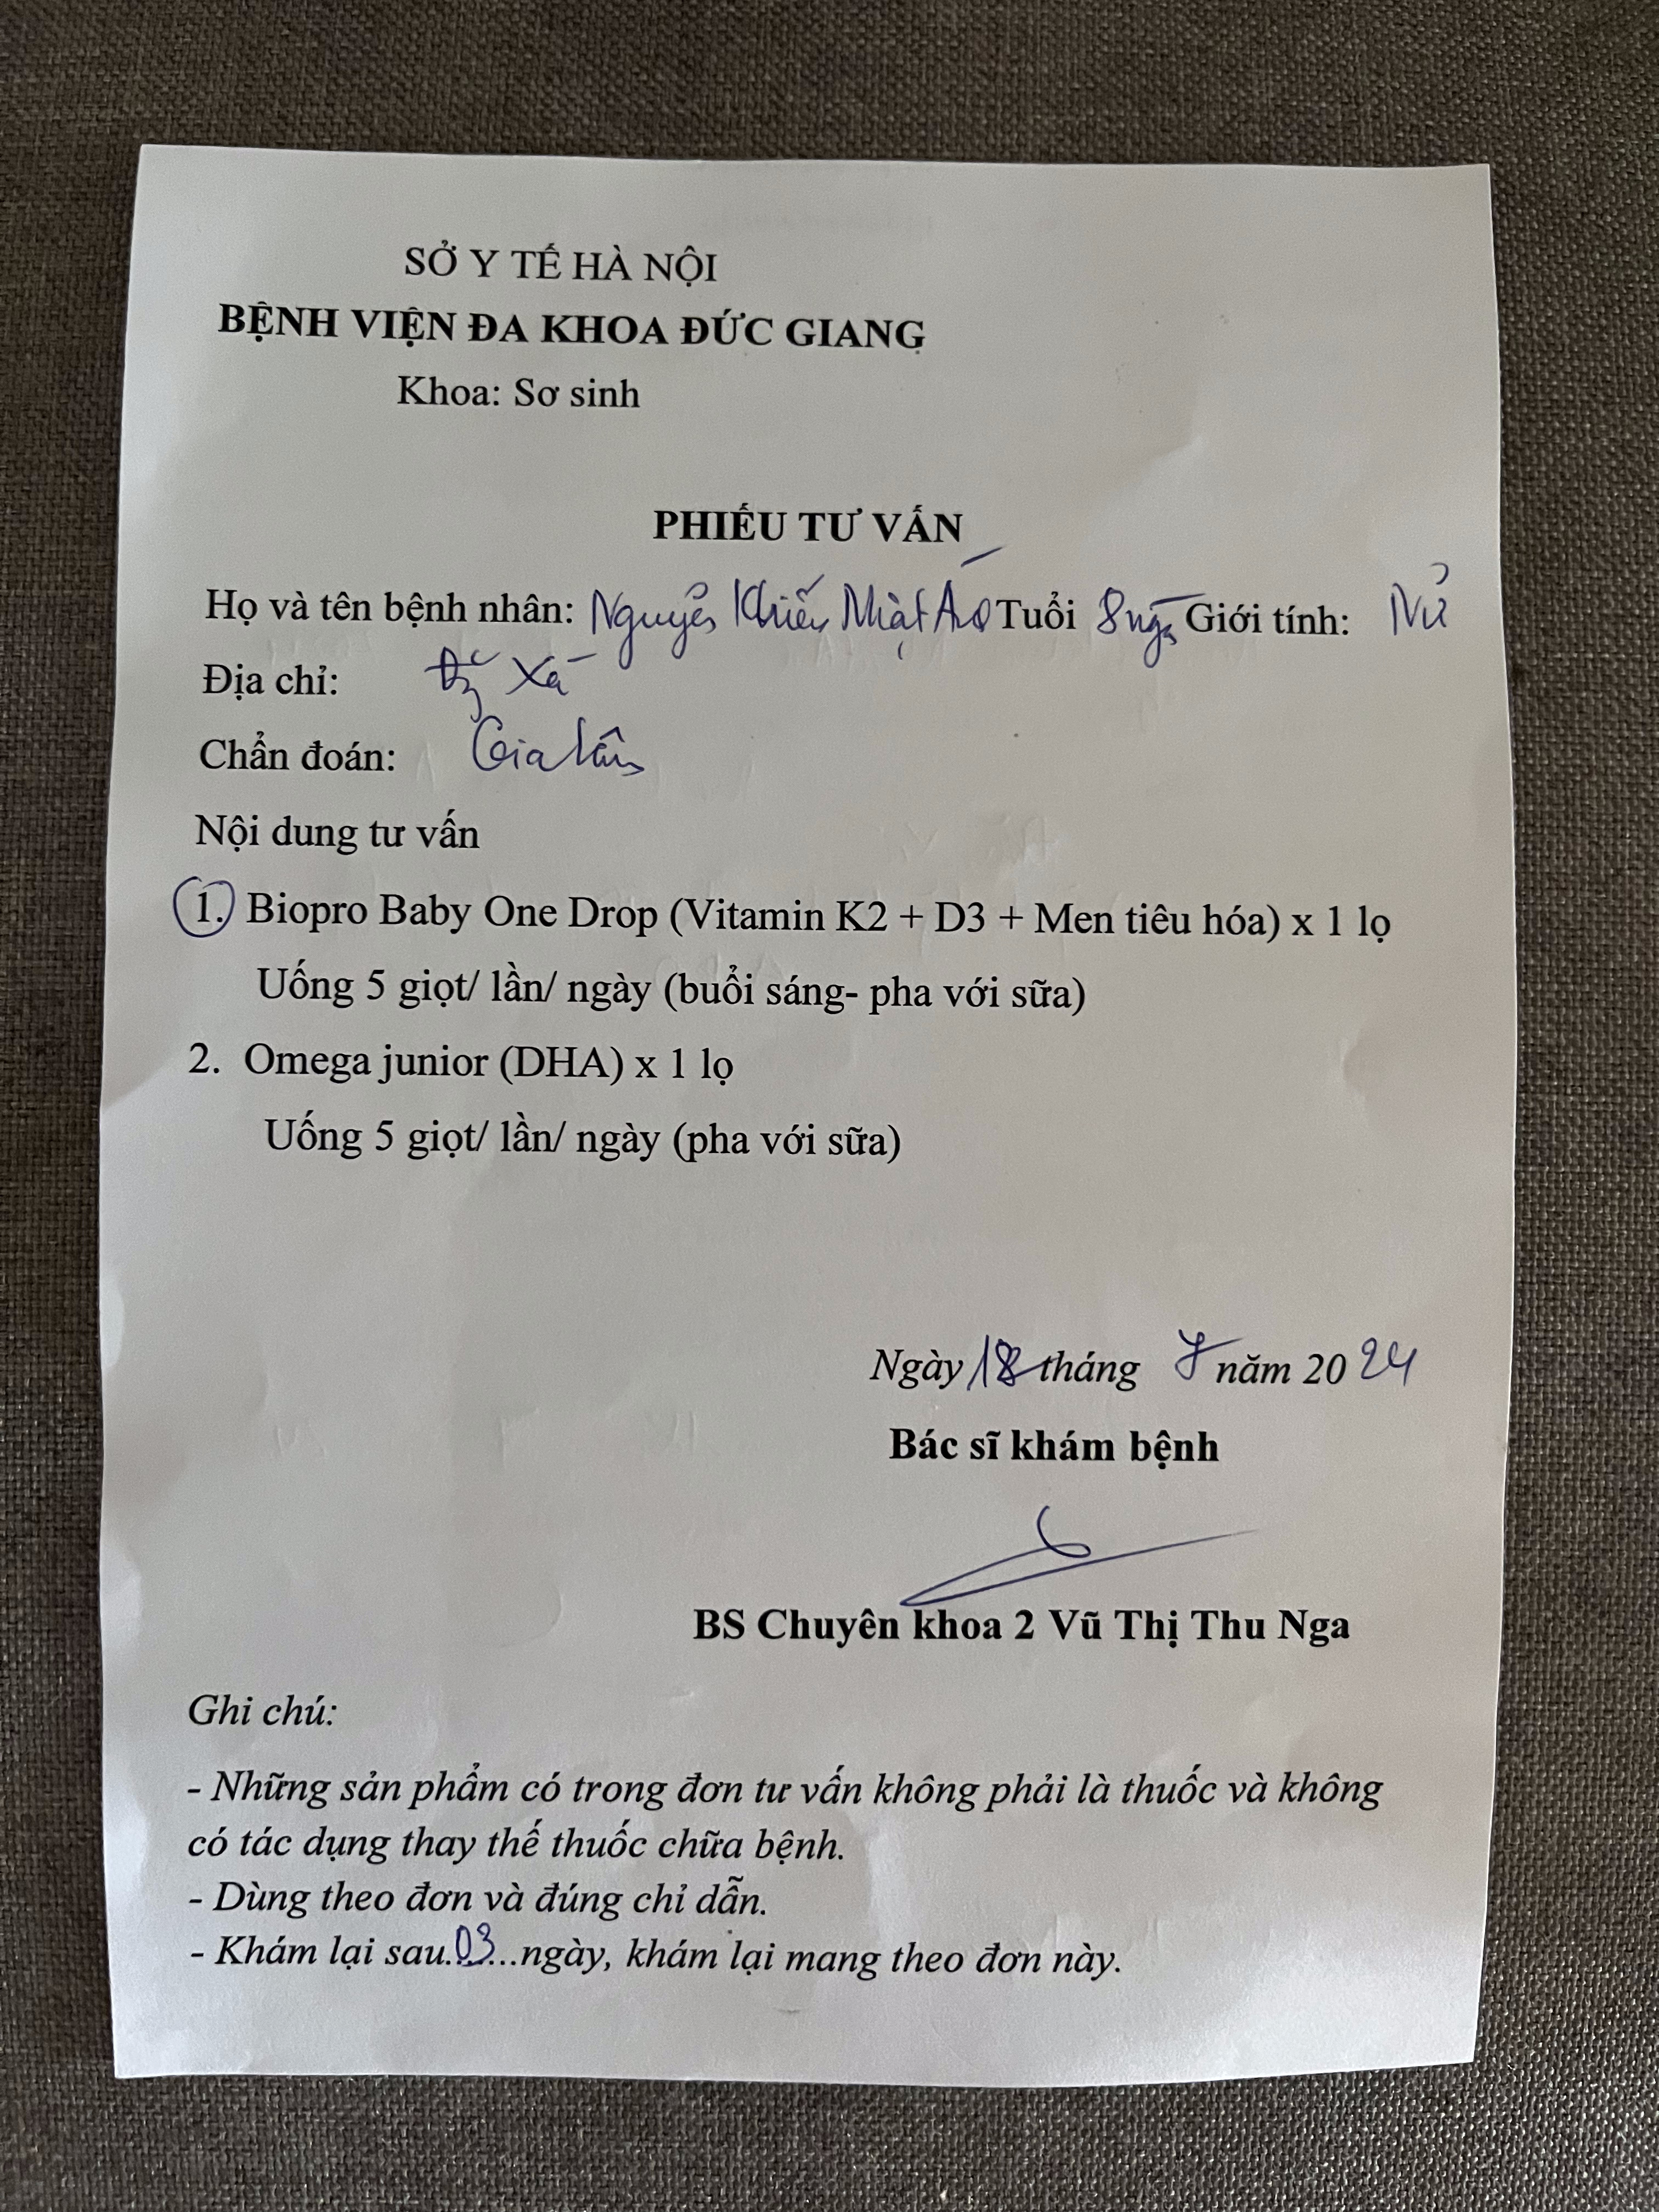 SỞ Y TẾ HÀ NỘI
BỆNH VIỆN ĐA KHOA ĐỨC GIANG
Khoa: Sơ sinh
PHIẾU TƯ VẤN
Họ và tên bệnh nhân: Nguyễn Nhật Tuổi 8 Giới tính: Nữ
Địa chỉ: Xá
Chẩn đoán: Gia Lâm
Nội dung tư vấn
1. Biopro Baby One Drop (Vitamin K2 + D3 + Men tiêu hóa) x 1 lọ
Uống 5 giọt/ lần/ ngày (buổi sáng- pha với sữa)
2. Omega junior (DHA) x 1 lọ
Uống 5 giọt/ lần/ ngày (pha với sữa)
Ngày 18 tháng 7 năm 2024
Bác sĩ khám bệnh
BS Chuyên khoa 2 Vũ Thị Thu Nga
Ghi chú:
- Những sản phẩm có trong đơn tư vấn không phải là thuốc và không
có tác dụng thay thế thuốc chữa bệnh.
- Dùng theo đơn và đúng chỉ dẫn.
- Khám lại sau.03...ngày, khám lại mang theo đơn này.